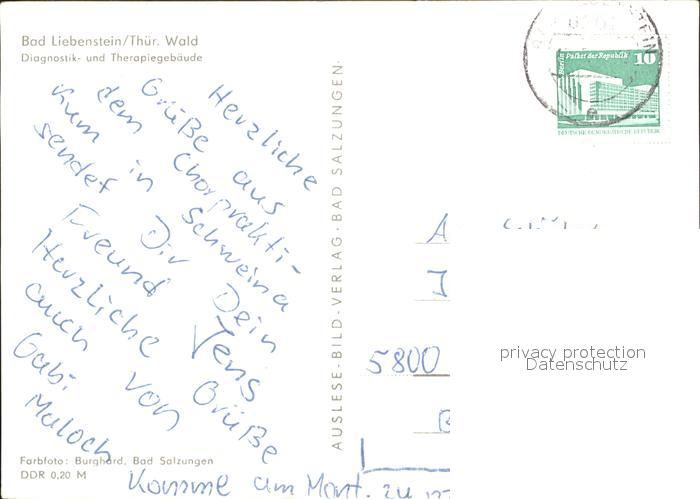 Bad Liebenstein/Thür. Wald
Diagnostik- und Therapiegebäude
Herzliche
Grüße aus
dem Chorprakti-
kum in Schweina
sendet Dir Dein
Freund Jens
Herzliche Grüße
auch von
Gabi
Maloch
Komme am Mont. zu
Farbfoto: Burghard, Bad Salzungen
DDR 0,20 M
AUSLESE-BILD-VERLAG · BAD SALZUNGEN
Berlin Palast der Republik 10
DEUTSCHE DEMOKRATISCHE REPUBLIK
A
J
5800
privacy protection
Datenschutz